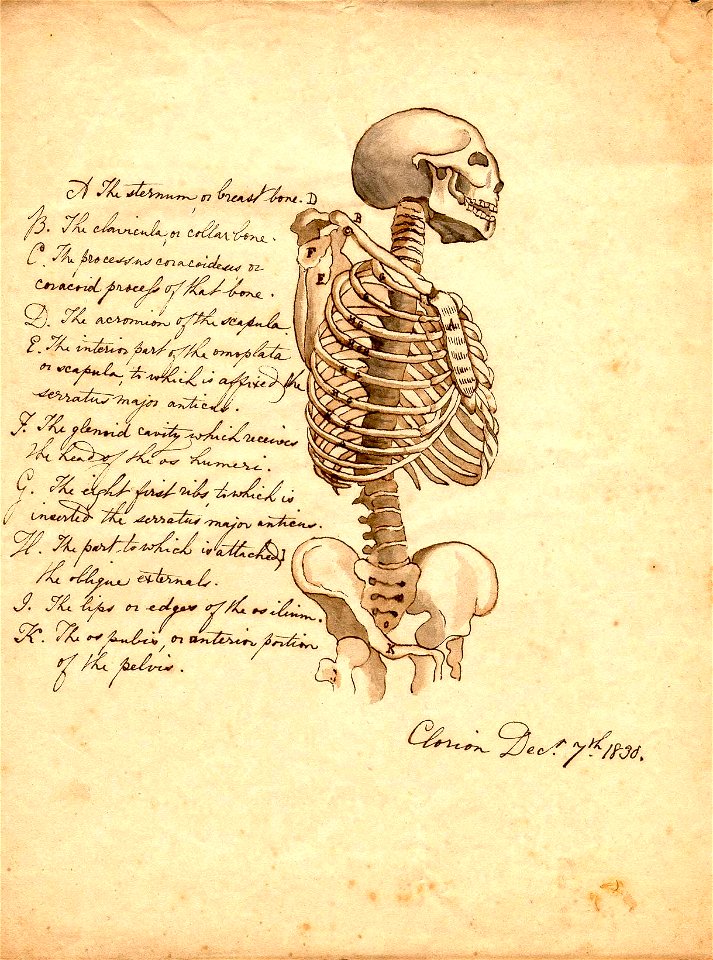 A The sternum, or breast bone.
B. The clavicula, or collar bone.
C. The processus coracoideus or
coracoid process of that bone.
D. The acromion of the scapula
E. The interior part of the omoplata
or scapula, to which is affixed the
serratus major anticus.
F. The glenoid cavity which receives
the head of the os humeri.
G. The eight first ribs, to which is
inserted the serratus major anticus.
H. The part to which is attached
the oblique externals.
I. The lips or edges of the os ilium.
K. The os pubis, or anterior portion
of the pelvis.
D
B
F
E
A
K
Clorion Dec. 7th 1830.